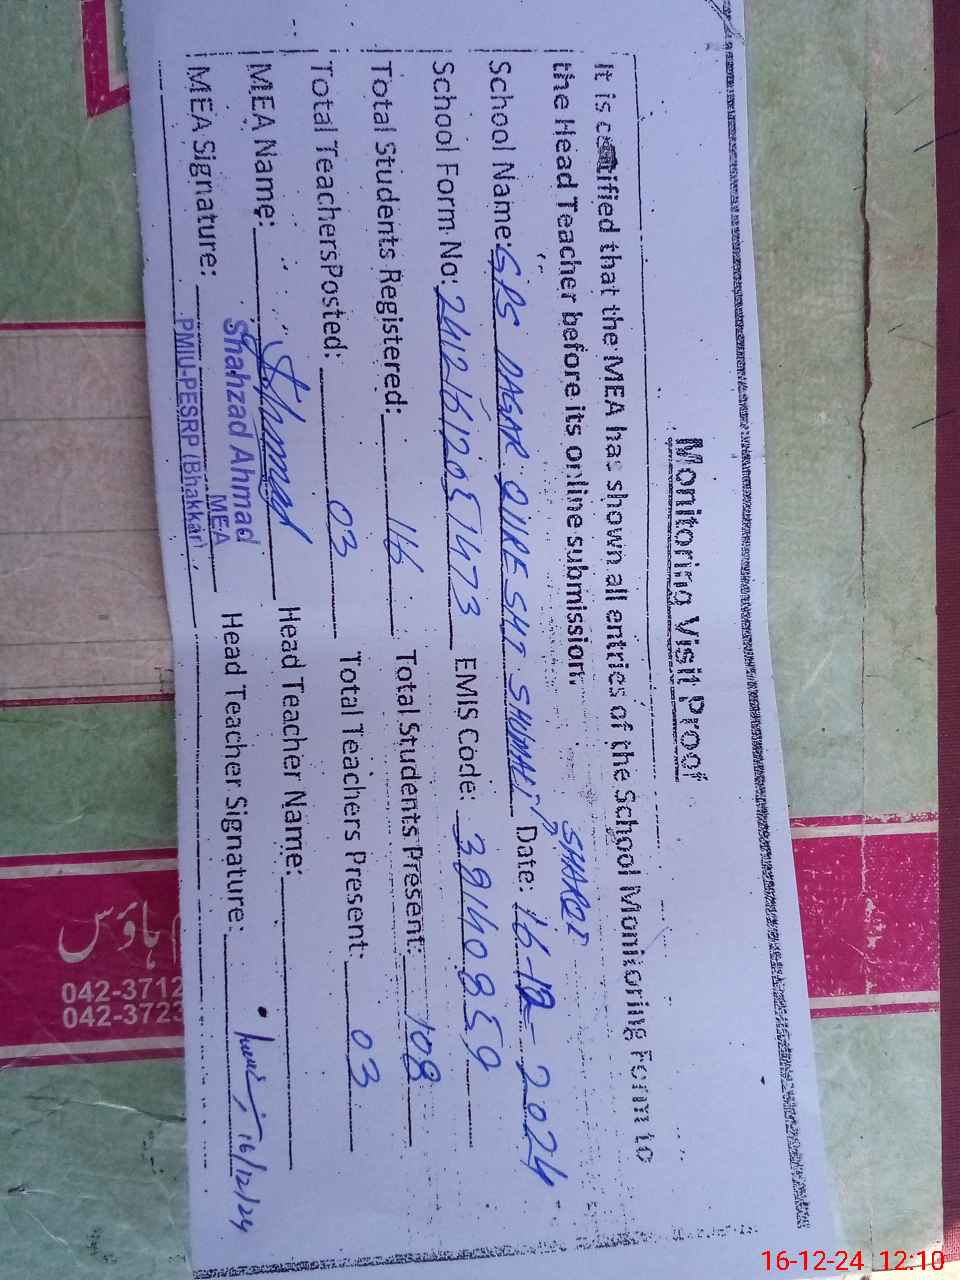 Monitoring Visit Proof
It is certified that the MEA has shown all entries of the School Monitoring Form to
the Head Teacher before its online submission.
SHARQI
School Name: GPS DAGAR QURESHI SHUMALI Date: 16-12-2024
School Form No: 24121612051473 EMIS Code: 39140859
Total Students Registered: 116 Total Students Present: 108
Total TeachersPosted: 03 Total Teachers Present: 03
MEA Name: Head Teacher Name:
Shahzad Ahmad
MEA
MEA Signature: Head Teacher Signature: 16/12/24
PMIU-PESRP (Bhakkar)
ہاؤس
042-3712
042-3723
16-12-24 12:10